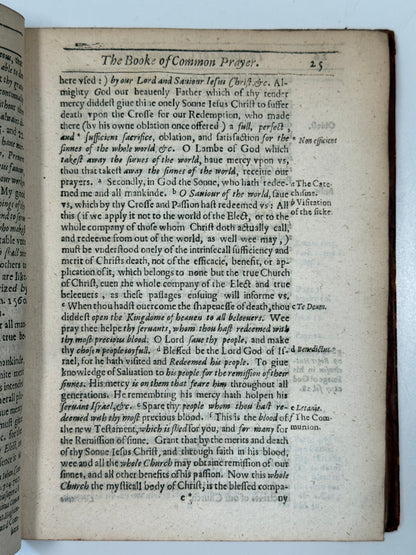 The Booke of Common Prayer. 25
here vsed : ) by our Lord and Saviour Iesus Christ, &c. Al-
mighty God our heavenly Father which of thy tender
mercy diddest give thine onely Sonne Iesus Christ to suffer
death vpon the Crosse for our Redemption, who made
there (by his owne oblation once offered ) a full, perfect ,
and sufficient sacrifice, oblation, and satisfaction for the
sinnes of the whole world, &c. O Lambe of God which
takest away the sinnes of the world, haue mercy vpon vs,
thou that takest away the sinnes of the world, receive our
prayers. Secondly, in God the Sonne, who hath redee-
med me and all mankinde. b O Saviour of the world, saue
vs, which by thy Crosse and Passion hast redeemed vs: All
this (if we apply it not to the world of the Elect, or to the
whole company of those whom Christ doth actually call,
and redeeme from out of the world, as well wee may, )
must be vnderstood onely of the intrinsecall sufficiency and
merit of Christs death, not of the efficacie, benefit, or ap-
plication of it, which belongs to none but the true Church
of Christ, even the whole company of the Elect and true
beleeuers, as these passages ensuing will informe vs.
c When thou hadst overcome the sharpenesse of death, thou
diddest open the Kingdome of heaven to all beleevers. Wee
pray thee helpe thy servants, whom thou hast redeemed with
thy most precious blood. O Lord save thy people, and make
thy chosen people ioyfull. d Blessed be the Lord God of Is-
rael, for he hath visited and Redeemed his people. To give
knowledge of Salvation to his people for the remission of their
sinnes. His mercy is on them that feare him throughout all
generations. He remembring his mercy hath holpen his
servant Israel, &c. e Spare thy people whom thou hast re-
deemed with thy most precious blood. f This is the blood of
the new Testament, which is shed for you, and for many for
the Remission of sinne. Grant that by the merits and death
of thy Sonne Iesus Christ, and through faith in his blood,
wee and all the whole Church may obtaine remission of our
sinnes, and all other benefits of his passion. Now this whole
Church the mysticall body of Christ, is the blessed compa-
e ny
* Non efficient
a The Cate-
chisme.
b Visitation
of the sicke.
c Te Deum.
d Benedictus.
e Letanie.
f The Com-
munion.